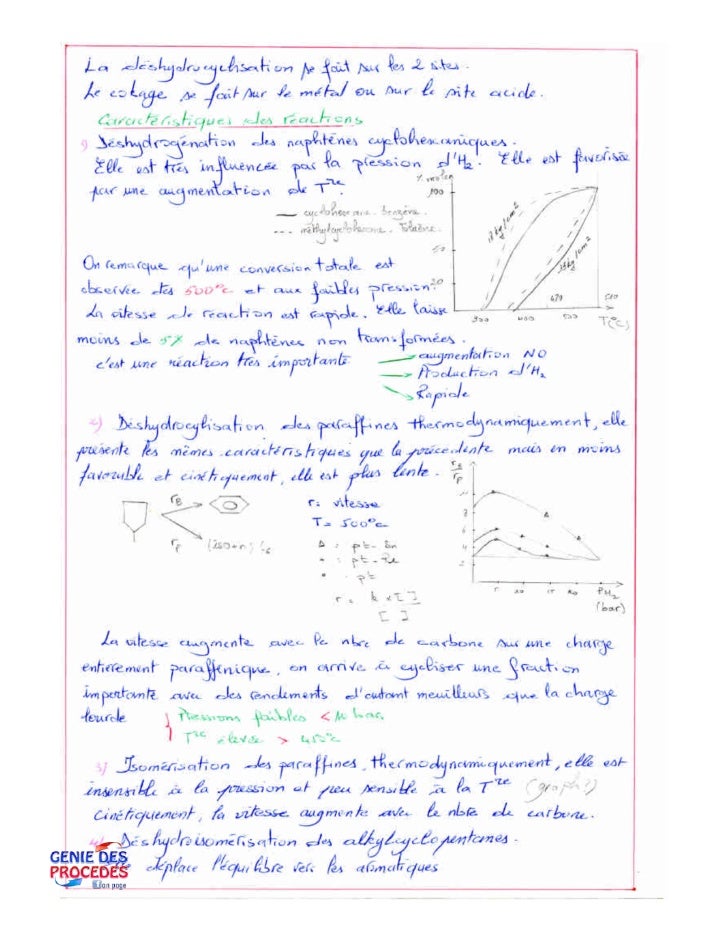 La déshydrocyclisation se fait sur les 2 sites.
Le cokage se fait sur le métal ou sur le site acide.
Caractéristiques des réactions
1) Déshydrogénation des naphtènes cyclohexaniques.
Elle est très influencée par la pression d'H2. Elle est favorisée
par une augmentation de Tre.
% molen
100
50
20
cyclohexane. benzène.
méthylcyclohexane. Toluène.
18 kg/cm2
35 kg/cm2
300 400 500
470
T(°C)
On remarque qu'une conversion totale est
observée dès 500°c et aux faibles pression.
La vitesse de réaction est rapide. Elle laisse
moins de 5% de naphtènes non transformées.
c'est une réaction très importante
augmentation NO
Production d'H2
Rapide
2) Déshydrocylisation des paraffines thermodynamiquement, elle
présente les mêmes caractéristiques que la précédente mais en moins
favorable et cinétiquement, elle est plus lente.
rB
rP
rB
rp
r: vitesse
T = 500°c
Δ : pt-Sn
: pt-Re
: pt
r = k x [ ]
[ ]
8
6
4
2
PH2
(bar)
La vitesse augmente avec le nbre de carbone sur une charge
entièrement paraffinique, on arrive à cycliser une fraction
importante avec des rendements d'autant meuilleurs que la charge
lourde
Pressions faibles < 10 bar
Tre élevée >
3) Isomérisation des paraffines, thermodynamiquement, elle est
insensible à la pression et peu sensible à la Tre (graph?)
Cinétiquement, la vitesse augmente avec le nbre de carbone.
4) Déshydroisomérisation des alkylcyclopentanes.
déplace l'équilibre vers les aromatiques
GENIE DES
PROCEDES
fan page